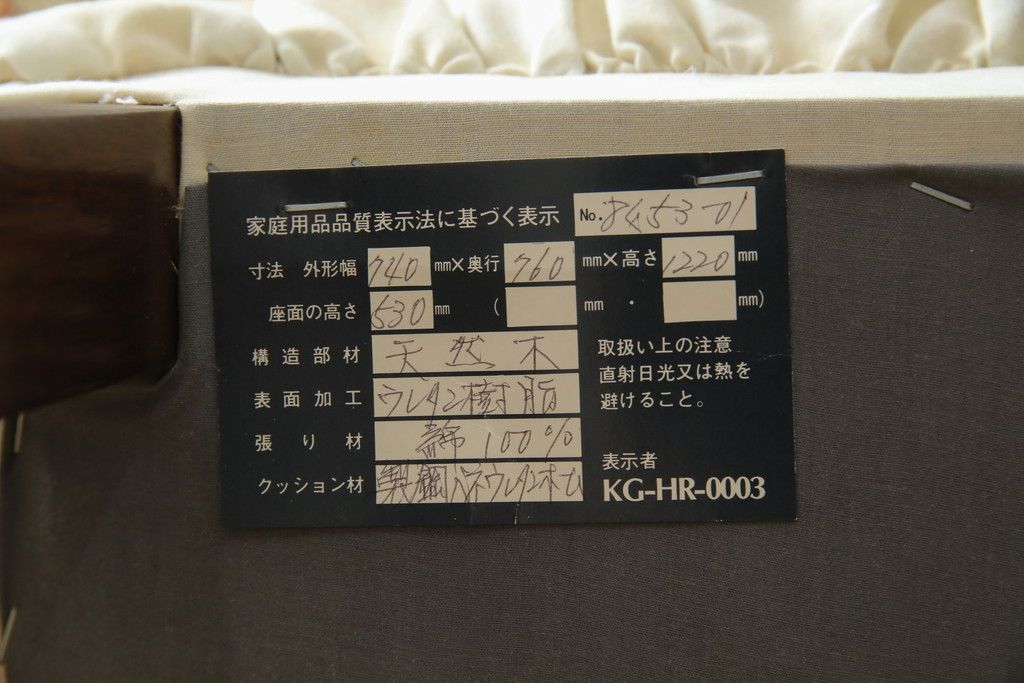 家庭用品品質表示法に基づく表示 No. 8453-01
寸法 外形幅 740 mm×奥行 760 mm×高さ 1220 mm
座面の高さ 530 mm ( mm ・ mm)
構造部材 天然木
表面加工 ウレタン樹脂
張り材 綿100%
クッション材 鋼製バネウレタンホーム
取扱い上の注意
直射日光又は熱を
避けること。
表示者
KG-HR-0003